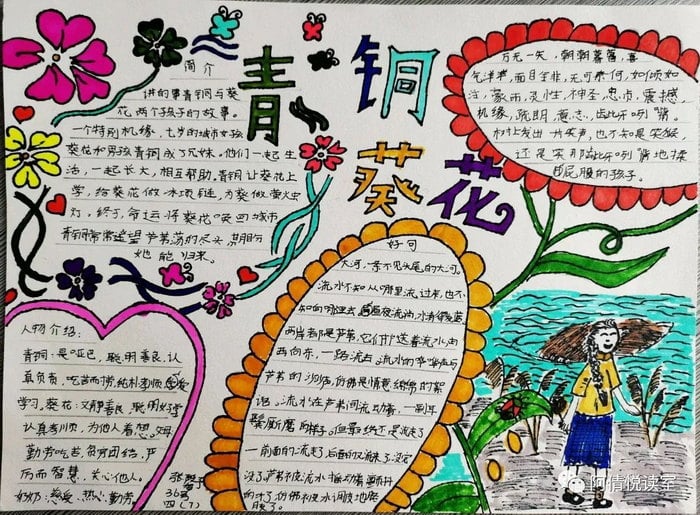 青铜葵花
简介
讲的事青铜与葵
花两个孩子的故事。
一个特别机缘,七岁的城市女孩
葵花和男孩青铜成了兄妹。他们一起生
活,一起长大,相互帮助,青铜让葵花上
学,给葵花做冰项链,为葵做萤火虫
灯,终于,命运将葵花召回城市
青铜常常遥望芦苇荡的尽头
她能归来。
万元一失,朝朝暮暮,喜
气洋洋,面目全非,无可奈何,如倾如
注,蒙雨,灵性,神圣,忠贞,震撼,
机缘,聪明,惹恙,
村上发出一片笑声,也不知是笑猴,
还是笑那
屁股的孩子。
好句
大河,一条不见头尾的大河。
流水不知从哪里流过来,也不
知向哪里去,昼夜流淌,水清得发蓝
两岸都是芦苇,它们护送着流水,由
西向东,一路流去。流水的哗哗声与
芦苇的沙沙,仿佛是情意绵绵的絮
语。流水在芦苇间流动着,一副耳
鬓厮磨的样子。但最终还是流走了
一前面的流走了,后面的又流来了,没完
没了,芦苇被流水摇动着,颤抖
的叶子,仿佛被水调皮地胳
肢了。
人物介绍:
青铜:是哑巴,聪明善良,认
真负责,吃苦而劳,纯朴孝顺,
学习。葵花:文静善良,聪明好学
认真孝顺,为他人着想。奶奶:
勤劳吃苦,负责团结,严
厉而智慧,关心他人。
奶奶:慈爱,热心,勤劳
张
36号
四(7)
阿倩悦读宝